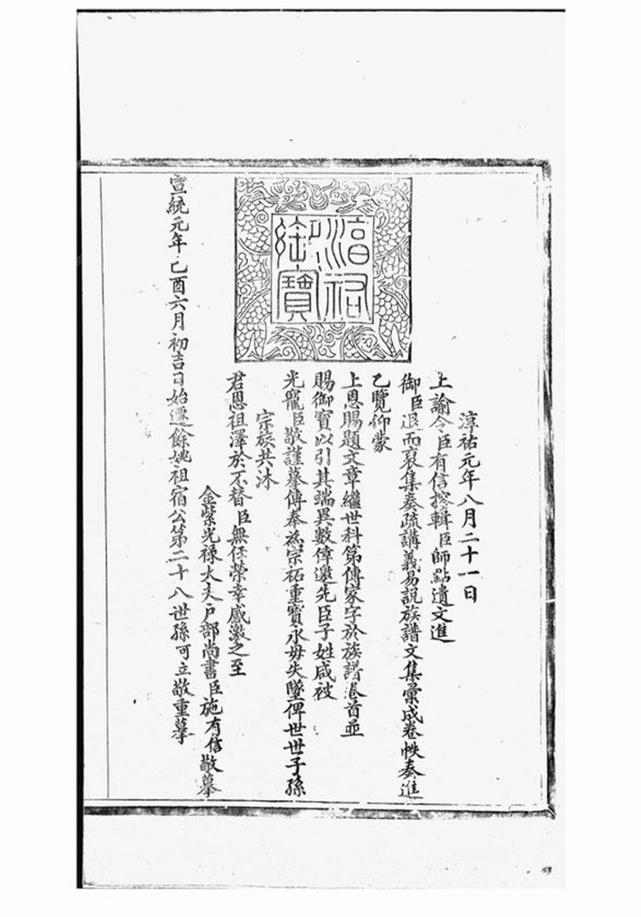 淳祐
御寶
淳祐元年八月二十一日
上諭令臣有信搜輯臣師點遺文進
御臣退而裒集奏疏講義易說族譜文集彙成卷帙奏進
乙覽仰蒙
上恩賜題文章繼世科第傳家字於族譜卷首並
賜御寶以引其端異數倖邀先臣子姓咸被
光寵臣敬謹摹傳奉為宗祏重寶永毋失墜俾世世子孫
宗族共沐
君恩祖澤於不替臣無任榮幸感激之至
金紫光祿大夫戶部尚書臣施有信敬摹
宣統元年己酉六月初吉日始遷餘姚祖宿公第二十八世孫可立敬重摹